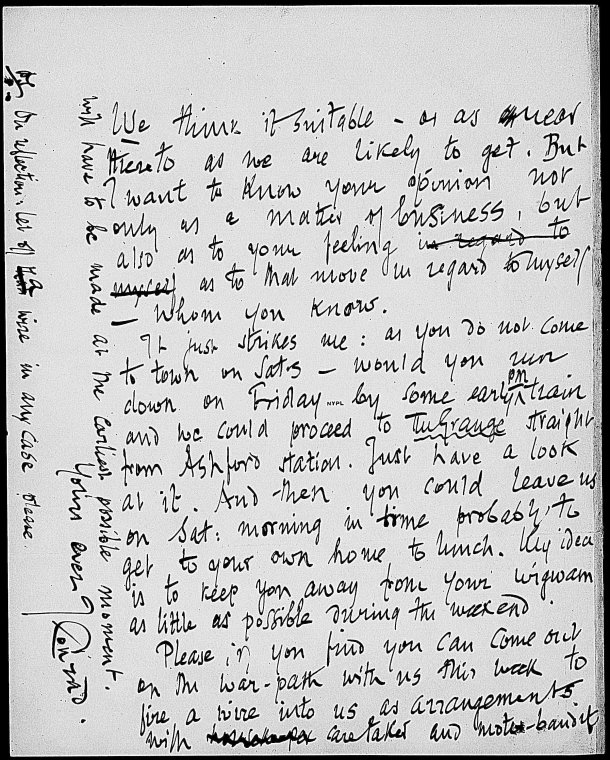 We think it suitable – or as near
thereto as we are likely to get. But
I want to know your opinion not
only as a matter of business, but
also as to your feeling in regard to
myself as to that move in regard to myself
– whom you know.
It just strikes me: as you do not come
to town on Sats – would you run
down on Friday by some early pm train
NYPL
and we could proceed to The Grange straight
from Ashford station. Just have a look
at it. And then you could leave us
on Sat: morning in time probably to
get to your own home to lunch. My idea
is to keep you away from your wigwam
as little as possible during the week end.
Please if you find you can come out
on the war-path with us this week to
fire a wire into us as arrangements
with caretaker and motor-bandit
will have to be made at the earliest possible moment.
Yours ever
Conrad.
PS. On reflection: let us wire in any case please.